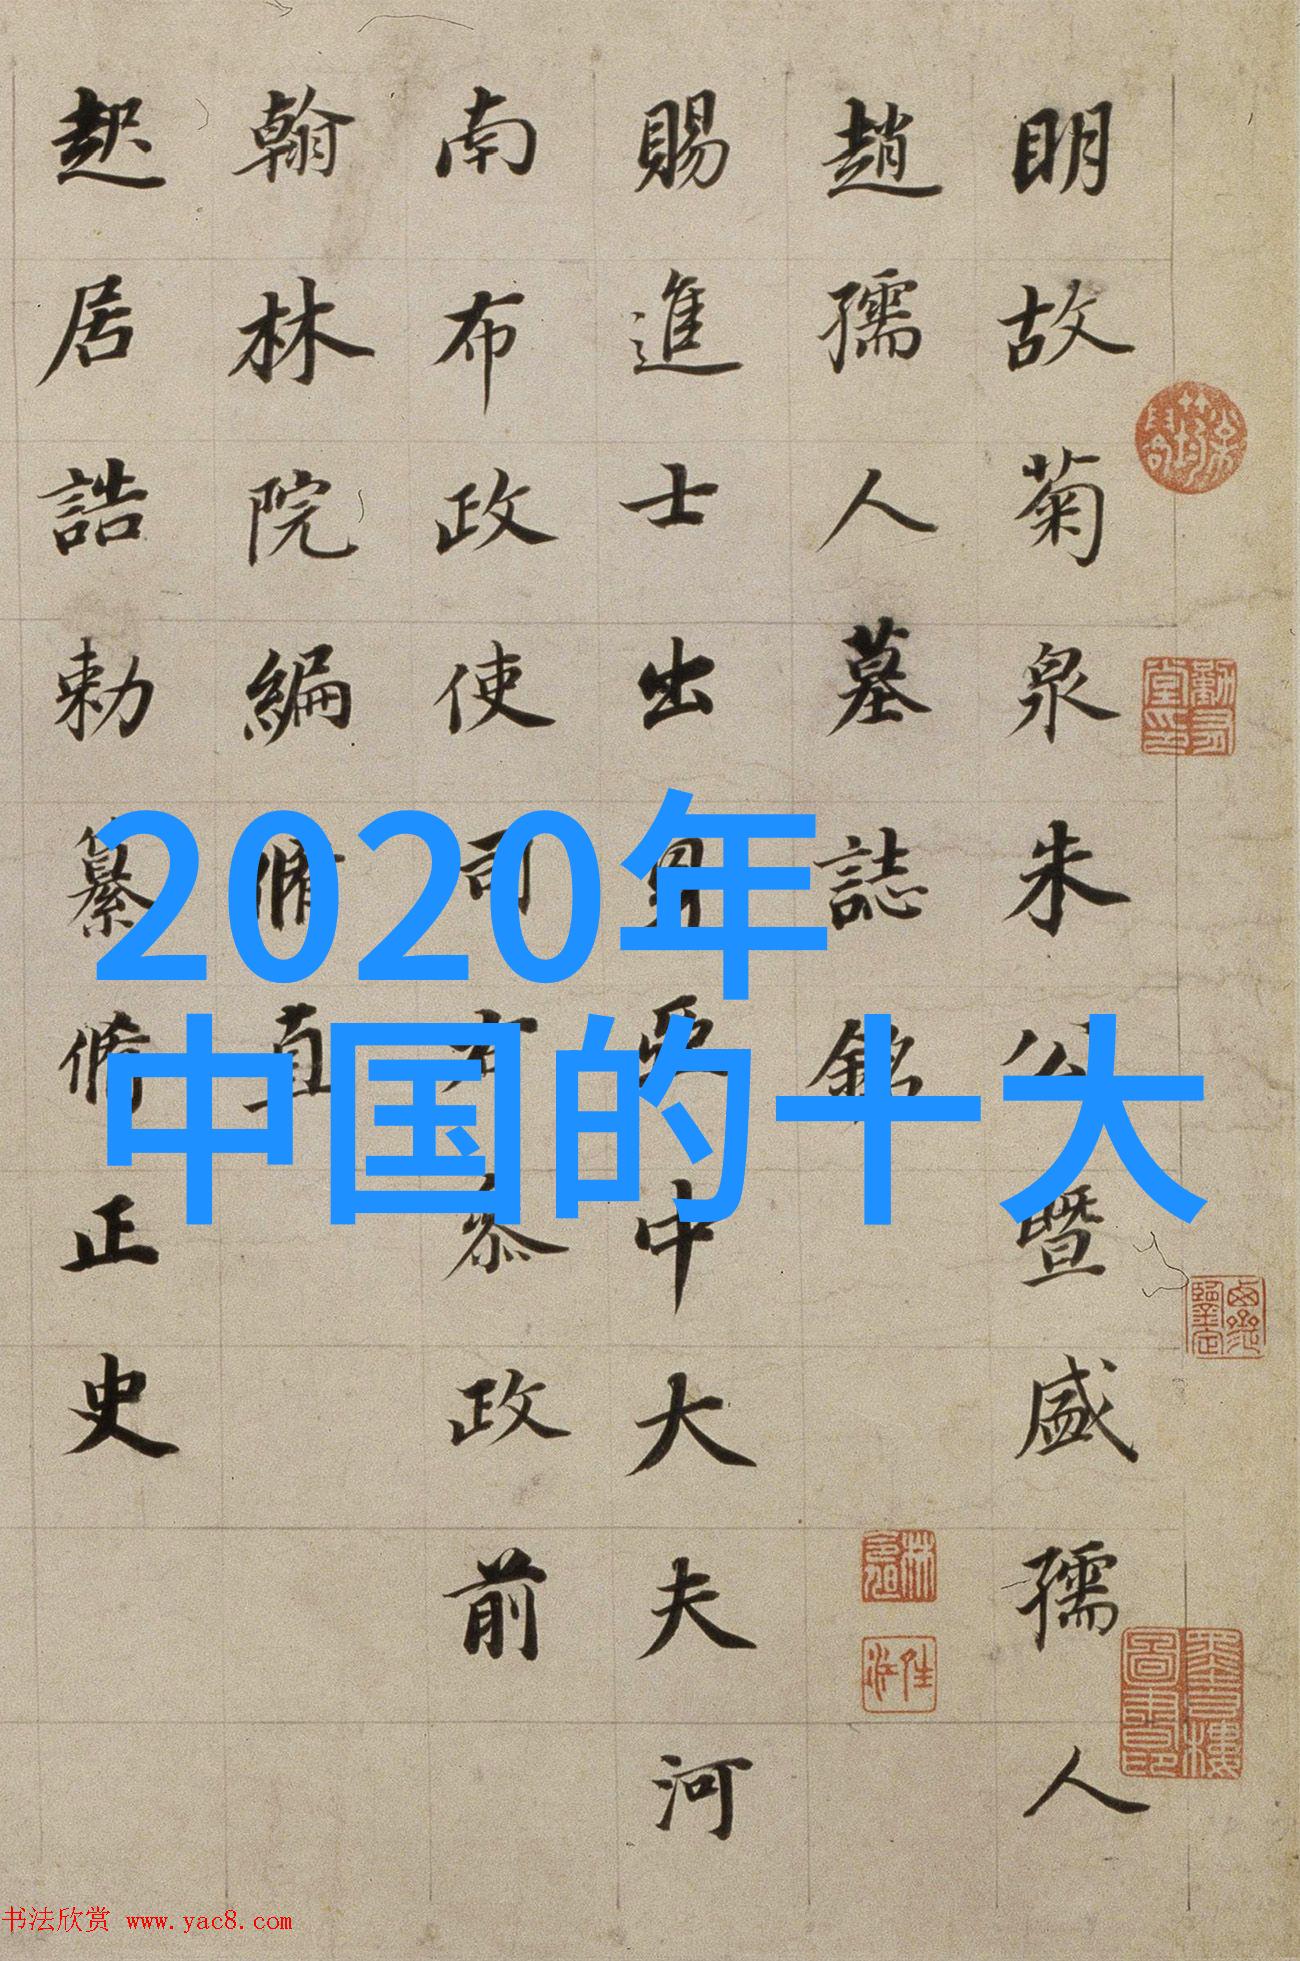 明故菊泉朱公暨盛孺人
趙孺人墓誌銘
賜進士出身
中大夫河
南布政使司
政前
翰林院編脩直
起居誥勅纂脩正史
2020年
中国的十大
书法欣赏 www.yac8.com